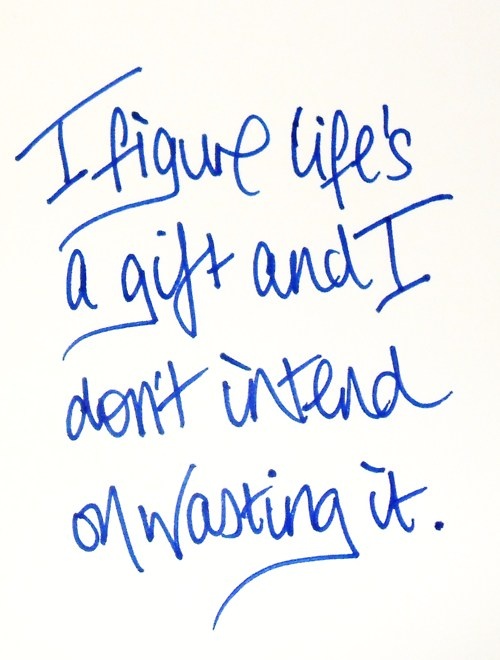 I figure life's
a gift and I
don't intend
on wasting it.